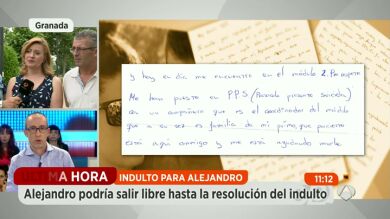 Granada
y hoy en dia me encuentro en el módulo 2. De respeto
Me han puesto en P.P.S (
) es un compañero que es el coordinador del módulo
que a su vez es familia de mi primo, que
está aquí conmigo y me está ayudando mucho
MA HORA
INDULTO PARA ALEJANDRO
11:12
Alejandro podría salir libre hasta la resolución del indulto